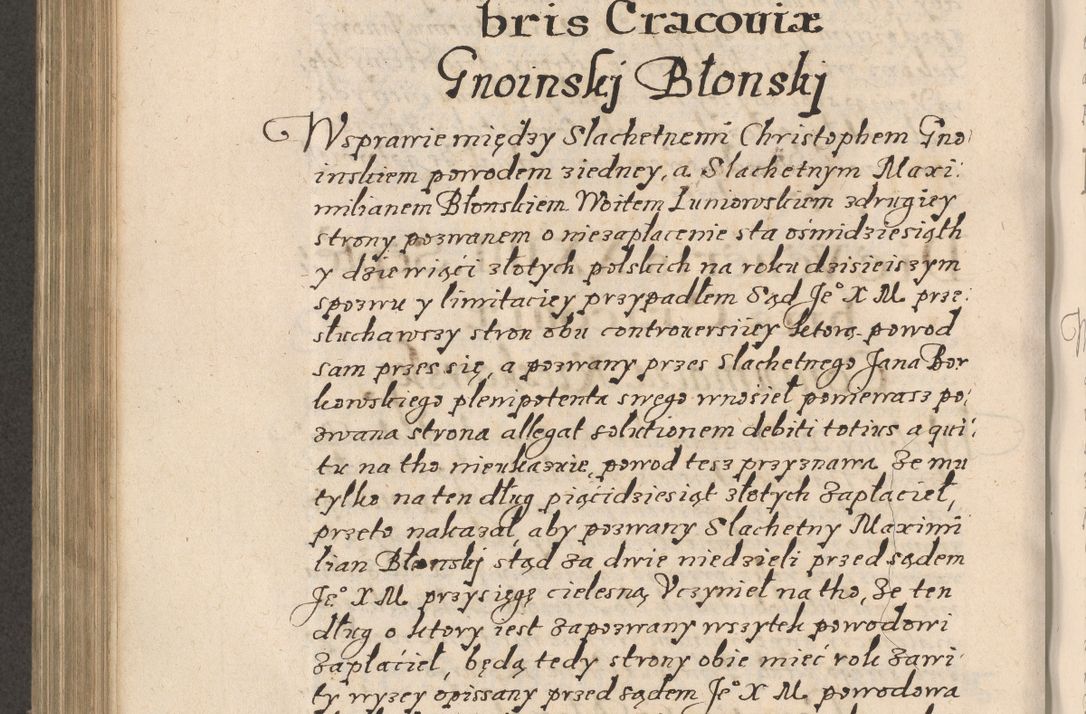 bris Cracouiæ
Gnoinskj Błonskj
Wsprawie między Slachetnemi Christophem Gno
inskiem powodem ziedney, a Slachetnym Maxi:
milianem Błonskiem Woitem Łuniowskiem zdrugiey
strony pozwanem o niezapłacenie sta ośmidziesiąth
y dziewiąći złotych polskich na roku dzisieiszym
spozwu y limitaciey przypadłem Sąd Jeº X M prze:
słuchawszy stron obu controuersiiey ktorą powod
sam przes się, a pozwany przes Slachetnego Jana Bor
kowskiego plenipotenta swego wnosieł poniewasz po:
zwana strona allegat solutionem debiti totius a qui:
tu na tho nieukazuie, powod tesz przyznawa że mu
tylko na ten dług piąćidziesiąt złotych zapłacieł,
przeto nakazał, aby pozwany Slachetny Maximi
lian Błonskj stąd za dwie niedzieli przed sądem
Jeº X M przysięgę cielesną Vczynieł na tho, że ten
dług o ktory iest zapozwany wszytek powodowi
zapłacieł, będą tedy strony obie mieć rok zawi
ty wyzey opissany przed sądem Jeº X M powodowa